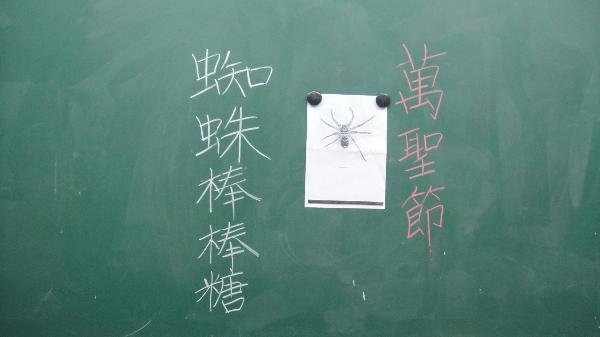 萬聖節
蜘蛛棒棒糖